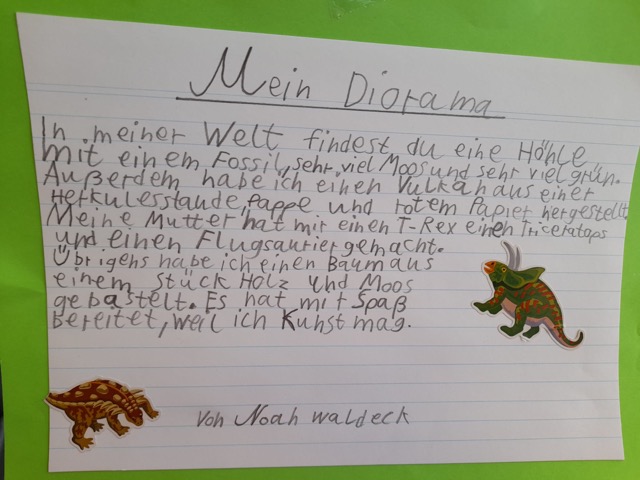 Mein Diorama
In meiner Welt findest du eine Höhle
mit einem Fossil, sehr viel Moos und sehr viel grün.
Außerdem habe ich einen Vulkan aus einer
Herkulesstaude, pappe und rotem Papier hergestellt.
Meine Mutter hat mir einen T-Rex einen Triceratops
und einen Flugsaurier gemacht.
Übrigens habe ich einen Baum aus
einem stück Holz und Moos
gebastelt. Es hat mir Spaß
bereitet, weil ich Kunst mag.
Von Noah waldeck